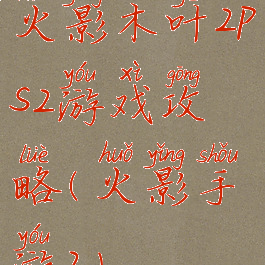 火影木叶2P
yóu xì gōng
S2游戏攻
lüè huǒ yǐng shǒu
略(火影手
yóu
游2)